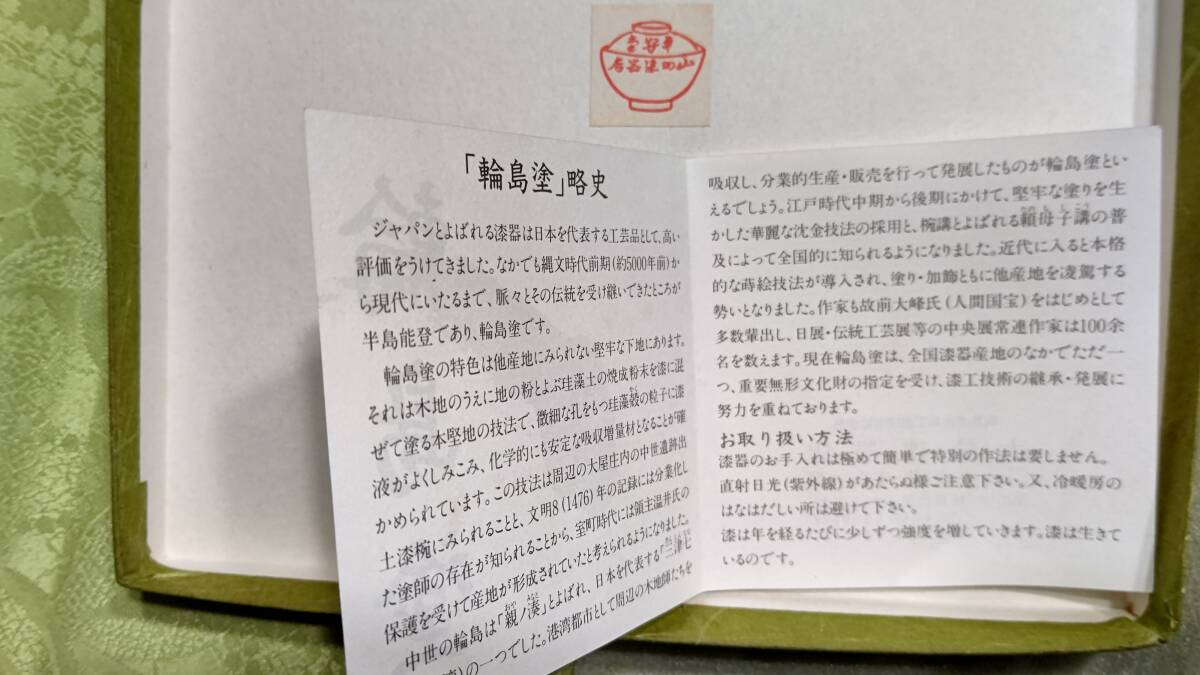 山田漆器店
「輪島塗」略史
ジャパンとよばれる漆器は日本を代表する工芸品として、高い
評価をうけてきました。なかでも縄文時代前期(約5000年前)か
ら現代にいたるまで、脈々とその伝統を受け継いできたところが
半島能登であり、輪島塗です。
輪島塗の特色は他産地にみられない堅牢な下地にあります。
それは木地のうえに地の粉とよぶ珪藻土の焼成粉末を漆に混
ぜて塗る本堅地の技法で、微細な孔をもつ珪藻殻の粒子に漆
液がよくしみこみ、化学的にも安定な吸収増量材となることが確
かめられています。この技法は周辺の大屋庄内の中世遺跡出
土漆椀にみられることと、文明8(1476)年の記録には分業化し
た塗師の存在が知られることから、室町時代には領主温井氏の
保護を受けて産地が形成されていたと考えられるようになりました。
中世の輪島は「親ノ湊」とよばれ、日本を代表する「三津七
の一つでした。港湾都市として周辺の木地師たちを
吸収し、分業的生産・販売を行って発展したものが輪島塗とい
えるでしょう。江戸時代中期から後期にかけて、堅牢な塗りを生
かした華麗な沈金技法の採用と、椀講とよばれる頼母子講の普
及によって全国的に知られるようになりました。近代に入ると本格
的な蒔絵技法が導入され、塗り・加飾ともに他産地を凌駕する
勢いとなりました。作家も故前大峰氏(人間国宝)をはじめとして
多数輩出し、日展・伝統工芸展等の中央展常連作家は100余
名を数えます。現在輪島塗は、全国漆器産地のなかでただ一
つ、重要無形文化財の指定を受け、漆工技術の継承・発展に
努力を重ねております。
お取り扱い方法
漆器のお手入れは極めて簡単で特別の作法は要しません。
直射日光(紫外線)があたらぬ様ご注意下さい。又、冷暖房の
はなはだしい所は避けて下さい。
漆は年を経るたびに少しずつ強度を増していきます。漆は生きて
いるのです。